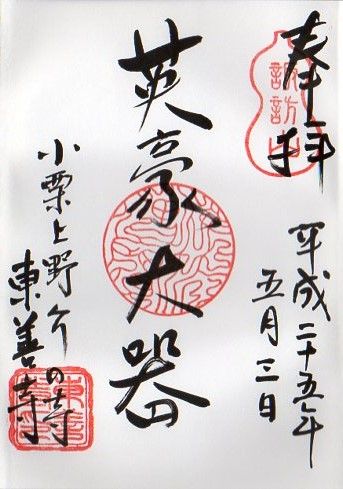 奉拝
諏訪山
平成二十五年
五月三日
英豪大器
小栗上野介の寺
東善寺